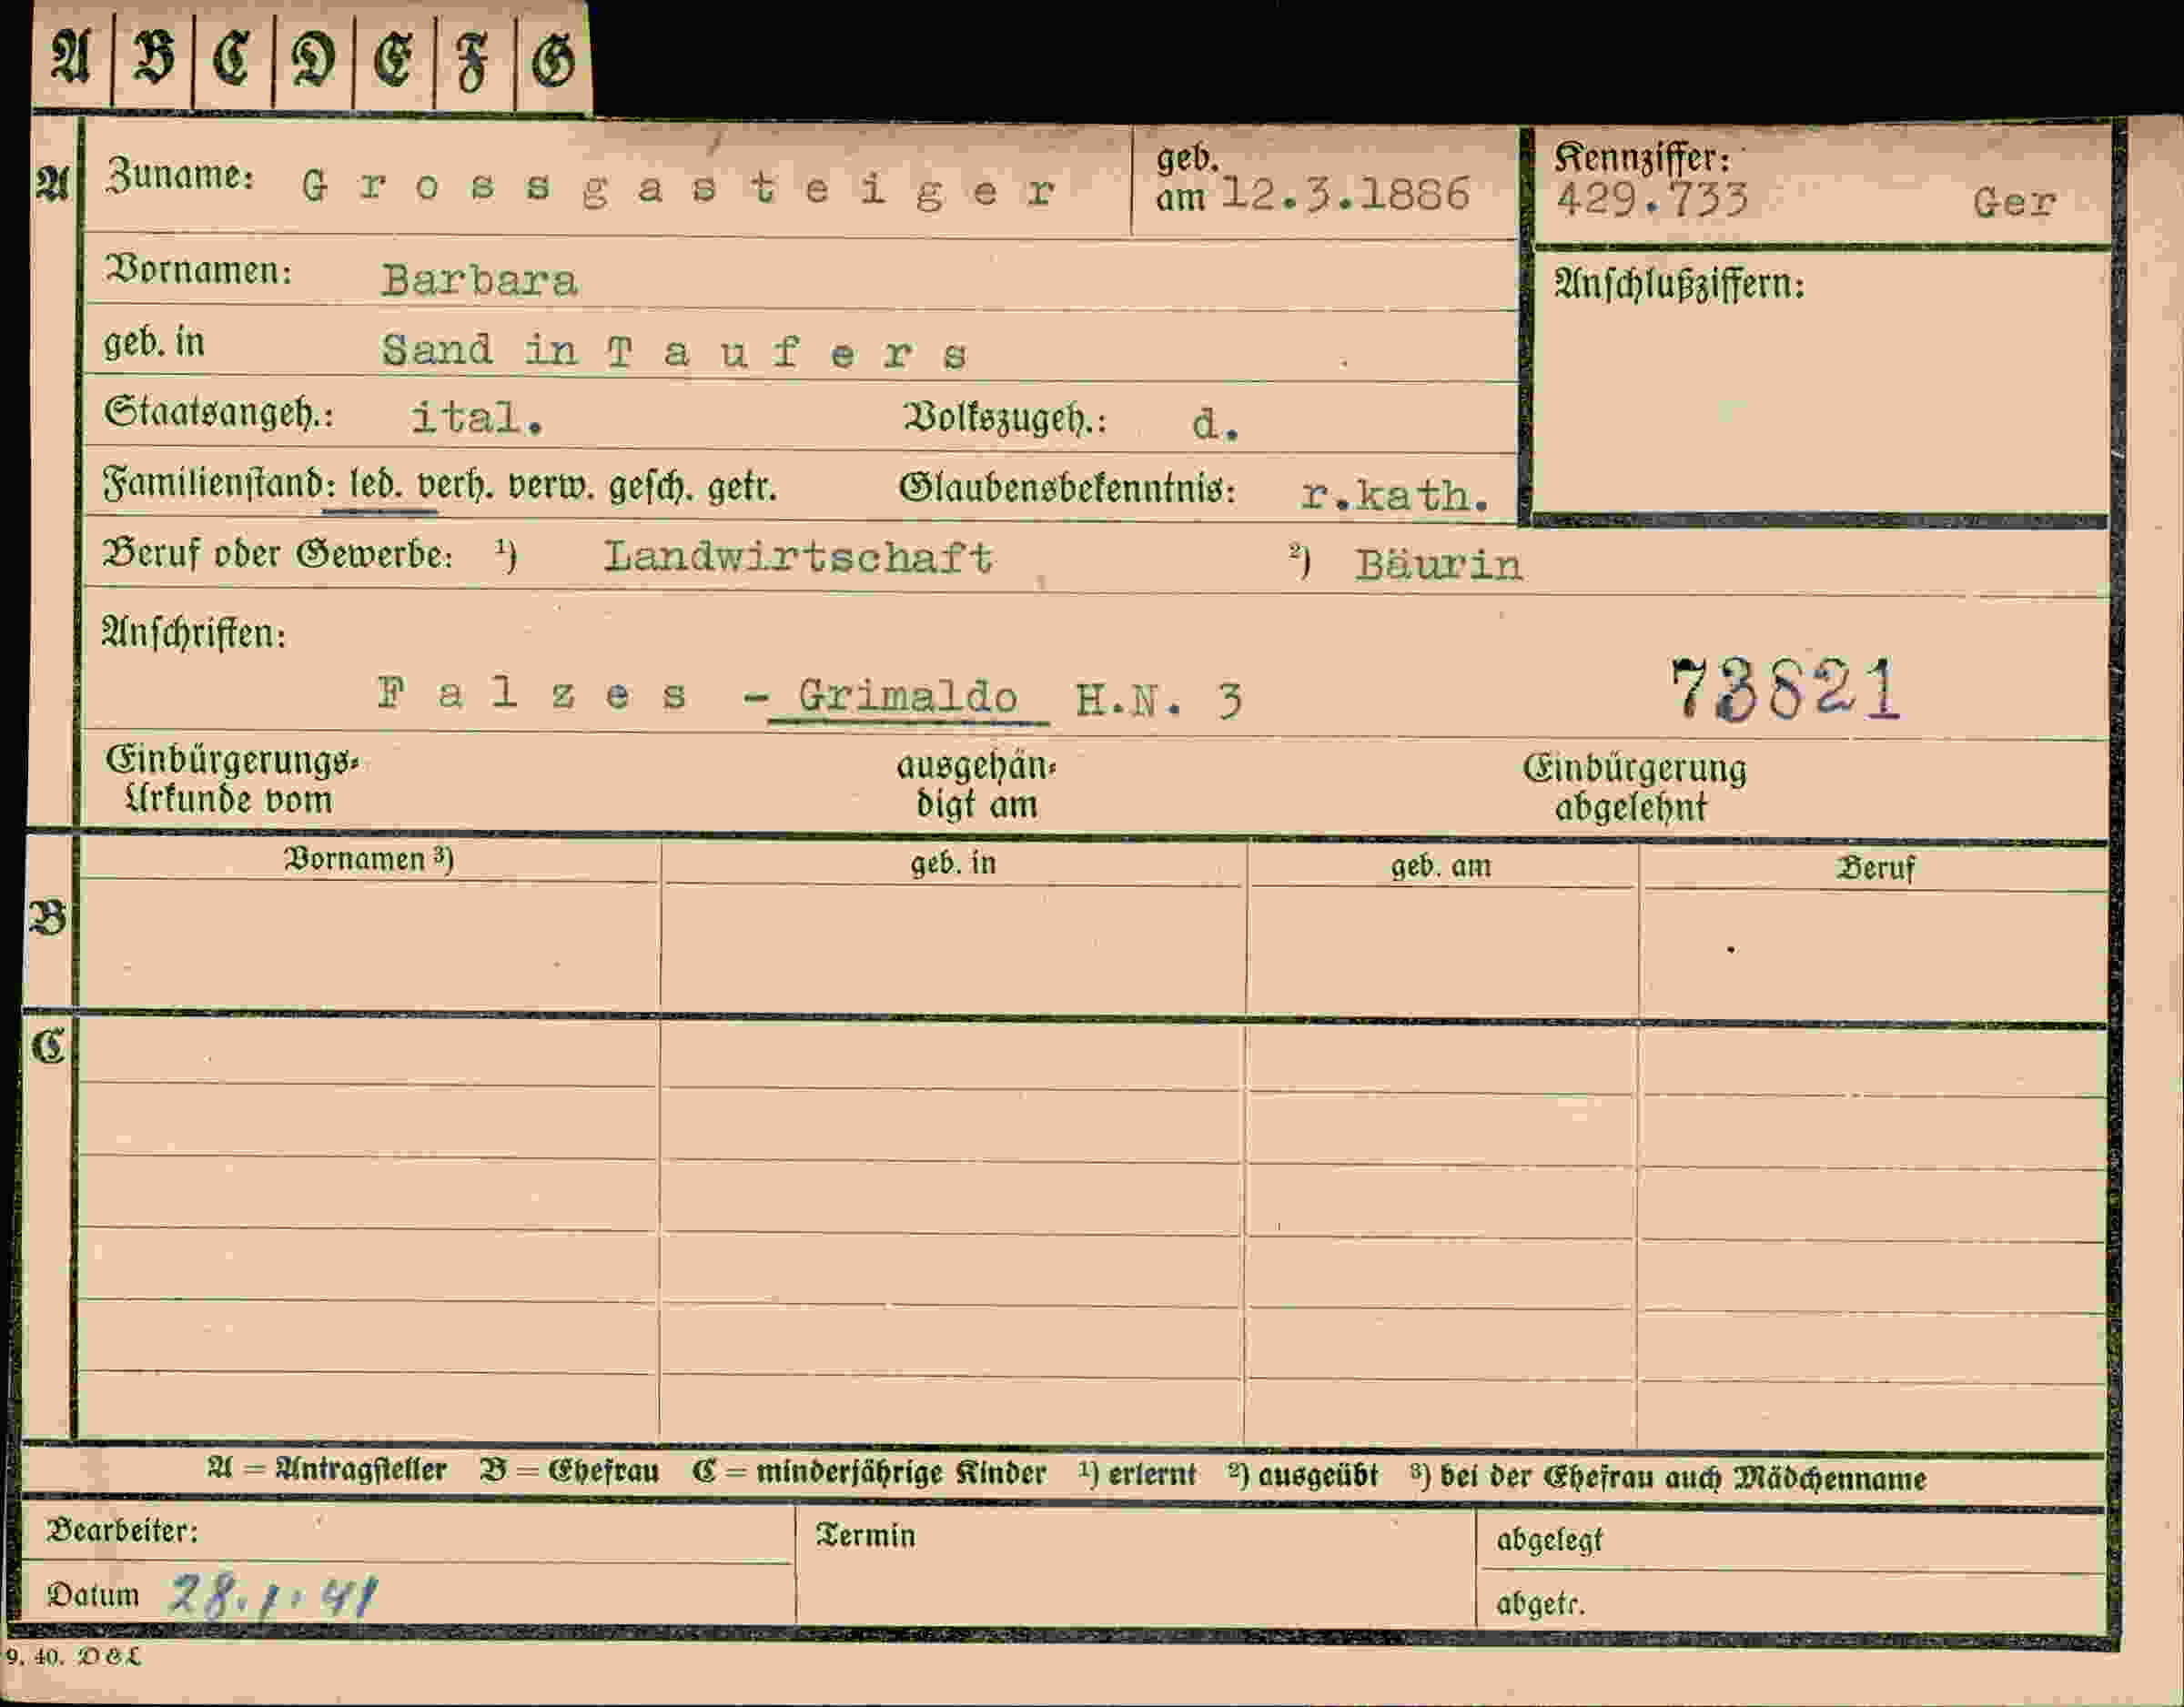 A B C D E F G
A Zuname: Grossgasteiger geb. am 12.3.1886 Kennziffer: 429.733 Ger
Vornamen: Barbara Anschlußziffern:
geb. in Sand in Taufers
Staatsangeh.: ital. Volkszugeh.: d.
Familienstand: led. verh. verw. gesch. getr. Glaubensbekenntnis: r.kath.
Beruf oder Gewerbe: ¹) Landwirtschaft ²) Bäurin
Anschriften:
Falzes - Grimaldo H.N. 3 73821
Einbürgerungs- ausgehän- Einbürgerung
Urkunde vom digt am abgelehnt
Vornamen ³) geb. in geb. am Beruf
B
C
A = Antragsteller B = Ehefrau C = minderjährige Kinder ¹) erlernt ²) ausgeübt ³) bei der Ehefrau auch Mädchenname
Bearbeiter: Termin abgelegt
Datum 28.1.41 abgetr.
9. 40. D & L